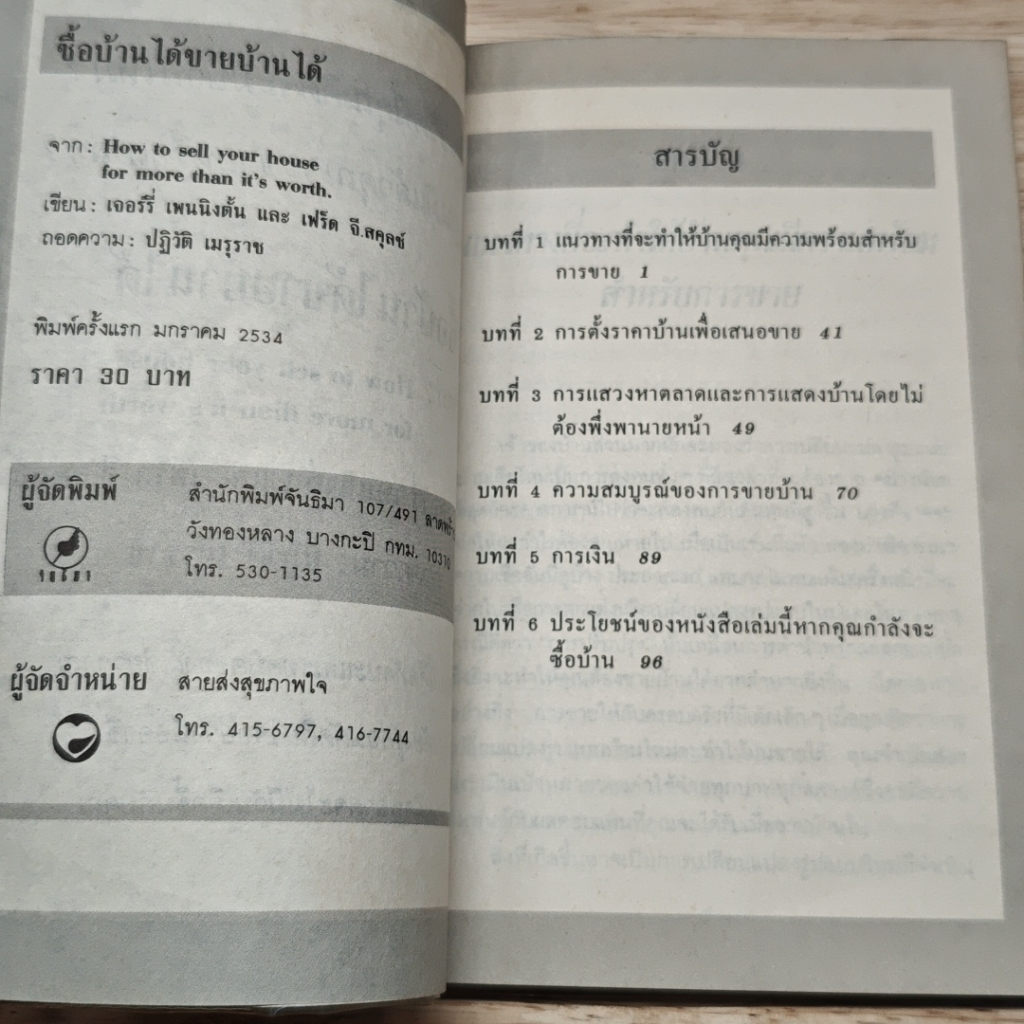 ซื้อบ้านได้ขายบ้านได้
จาก : How to sell your house
for more than it's worth.
เขียน : เจอร์รี่ เพนนิงตั้น และ เฟร็ด จี.สคุลซ์
ถอดความ : ปฏิวัติ เมรุราช
พิมพ์ครั้งแรก มกราคม 2534
ราคา 30 บาท
ผู้จัดพิมพ์
สำนักพิมพ์จันธิมา 107/491
วังทองหลาง บางกะปิ กทม. 10310
โทร. 530-1135
ผู้จัดจำหน่าย สายส่งสุขภาพใจ
โทร. 415-6797, 416-7744
สารบัญ
บทที่ 1 แนวทางที่จะทำให้บ้านคุณมีความพร้อมสำหรับ
การขาย 1
บทที่ 2 การตั้งราคาบ้านเพื่อเสนอขาย 41
บทที่ 3 การแสวงหาตลาดและการแสดงบ้านโดยไม่
ต้องพึ่งพานายหน้า 49
บทที่ 4 ความสมบูรณ์ของการขายบ้าน 70
บทที่ 5 การเงิน 89
บทที่ 6 ประโยชน์ของหนังสือเล่มนี้หากคุณกำลังจะ
ซื้อบ้าน 96